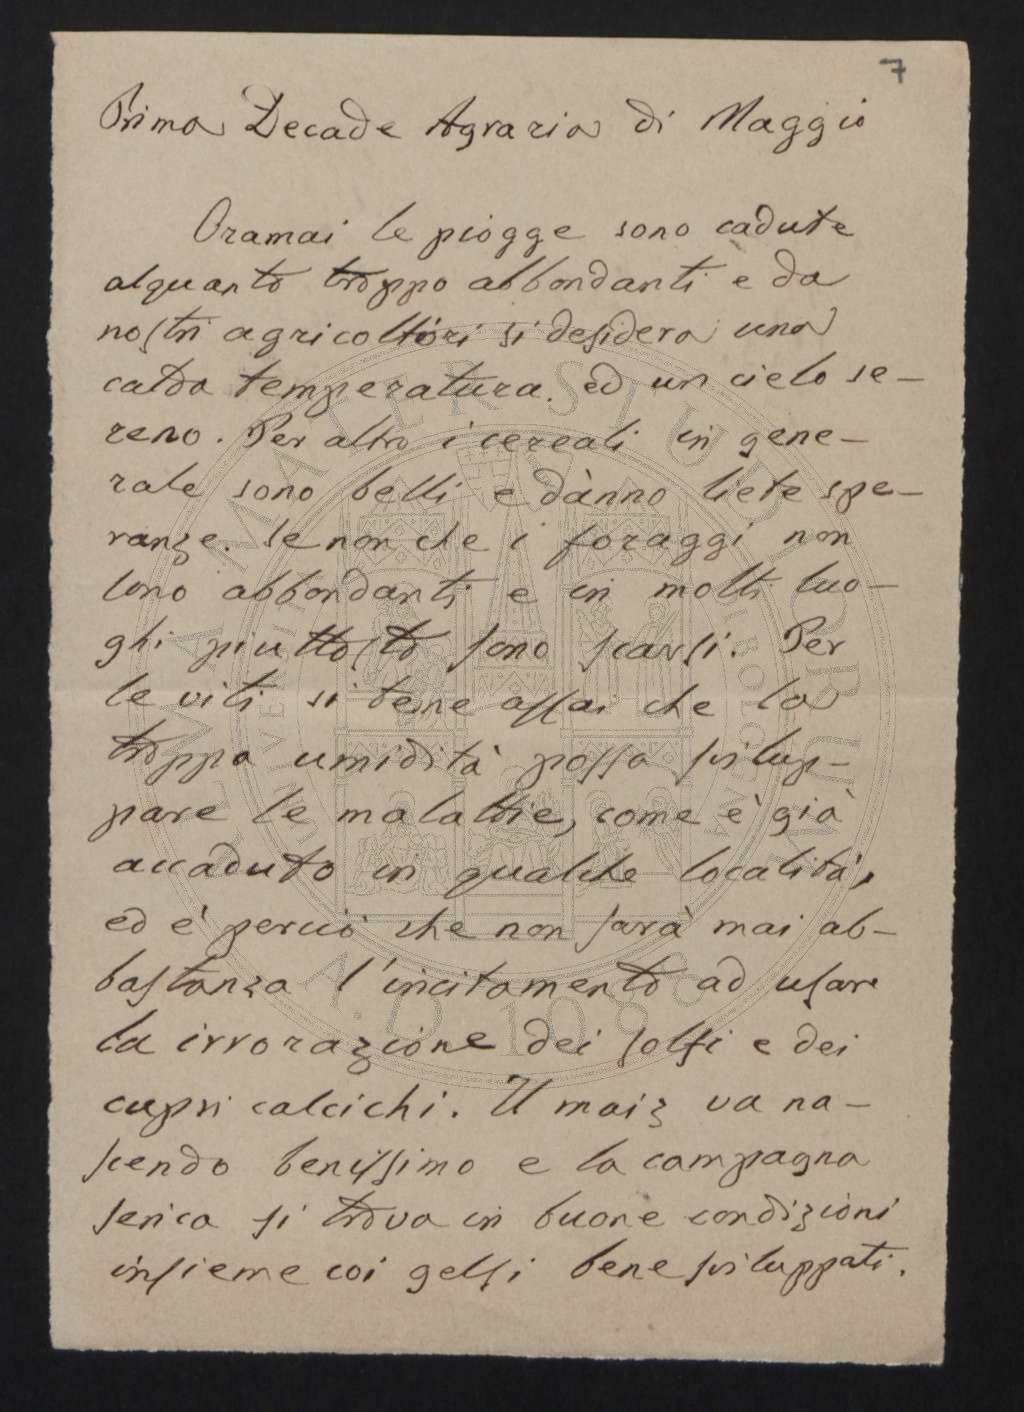 7
Prima Decade Agraria di Maggio
Oramai le piogge sono cadute
alquanto troppo abbondanti e da
nostri agricoltori si desidera una
calda temperatura. ed un cielo se-
reno. Per altro i cereali in gene-
rale sono belli e dànno liete spe-
ranze. Se non che i foraggi non
sono abbondanti e in molti luo-
ghi piuttosto sono scarsi. Per
le viti si teme assai che la
troppa umidità possa svilup-
pare le malattie, come è già
accaduto in qualche località,
ed è perciò che non sarà mai ab-
bastanza l'incitamento ad usare
la irrorazione dei solfi e dei
cupri calcichi. Il maiz va na-
scendo benissimo e la campagna
serica si trova in buone condizioni
insieme coi gelsi bene sviluppati.
ALMA MATER STUDIORUM
A.D. 1088